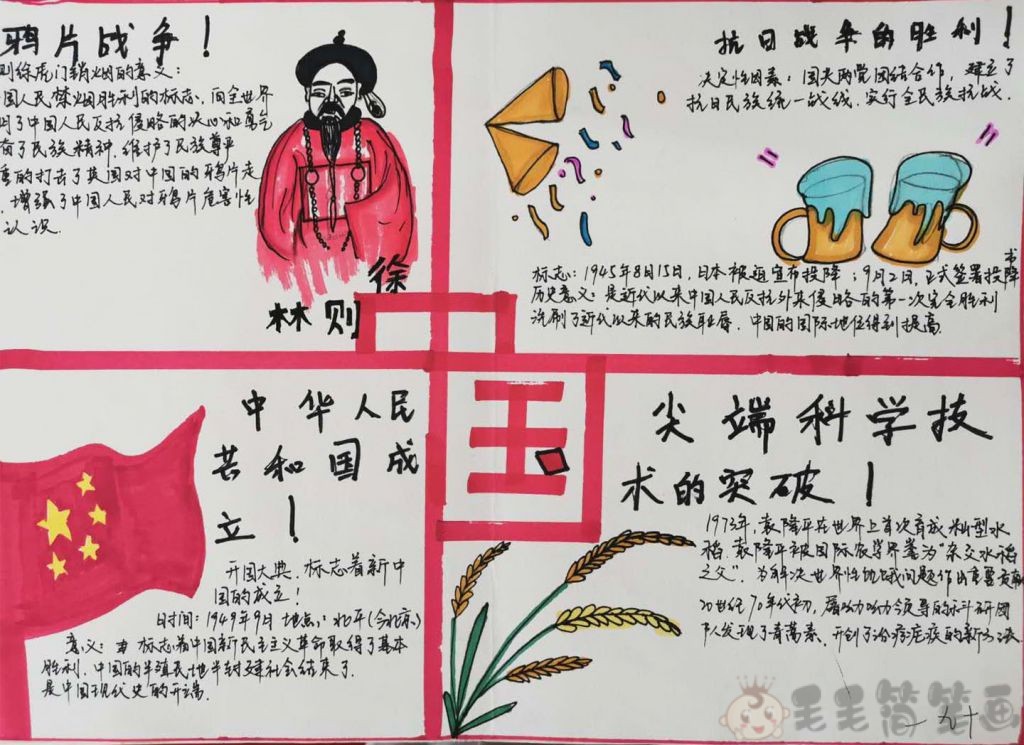 鸦片战争！
则徐虎门销烟的意义：
国人民禁烟胜利的标志，向全世界
明了中国人民反抗侵略的决心和勇气
奋了民族精神，维护了民族尊严
重的打击了英国对中国的鸦片走
，增强了中国人民对鸦片危害性
认识．
林则徐
抗日战争的胜利！
决定性因素：国共两党团结合作，建立了
抗日民族统一战线，实行全民族抗战．
标志：1945年8月15日，日本被迫宣布投降；9月2日，正式签署投降书
历史意义：是近代以来中国人民反抗外来侵略的第一次完全胜利
洗刷了近代以来的民族耻辱．中国的国际地位得到提高．
中华人民
共和国成
立！
开国大典，标志着新中
国的成立！
时间：1949年9月 地点：北平(今北京)
意义：标志着中国新民主主义革命取得了基本
胜利．中国的半殖民地半封建社会结束了．
是中国现代史的开端．
中国
尖端科学技
术的突破！
1973年，袁隆平在世界上首次育成籼型水
稻．袁隆平被国际农学界誉为“杂交水稻
之父”．为解决世界性饥饿问题作出重要贡献
20世纪70年代初，屠呦呦领导的科研团
队发现了青蒿素．开创了治疗疟疾的新方法
毛毛简笔画
一 九十